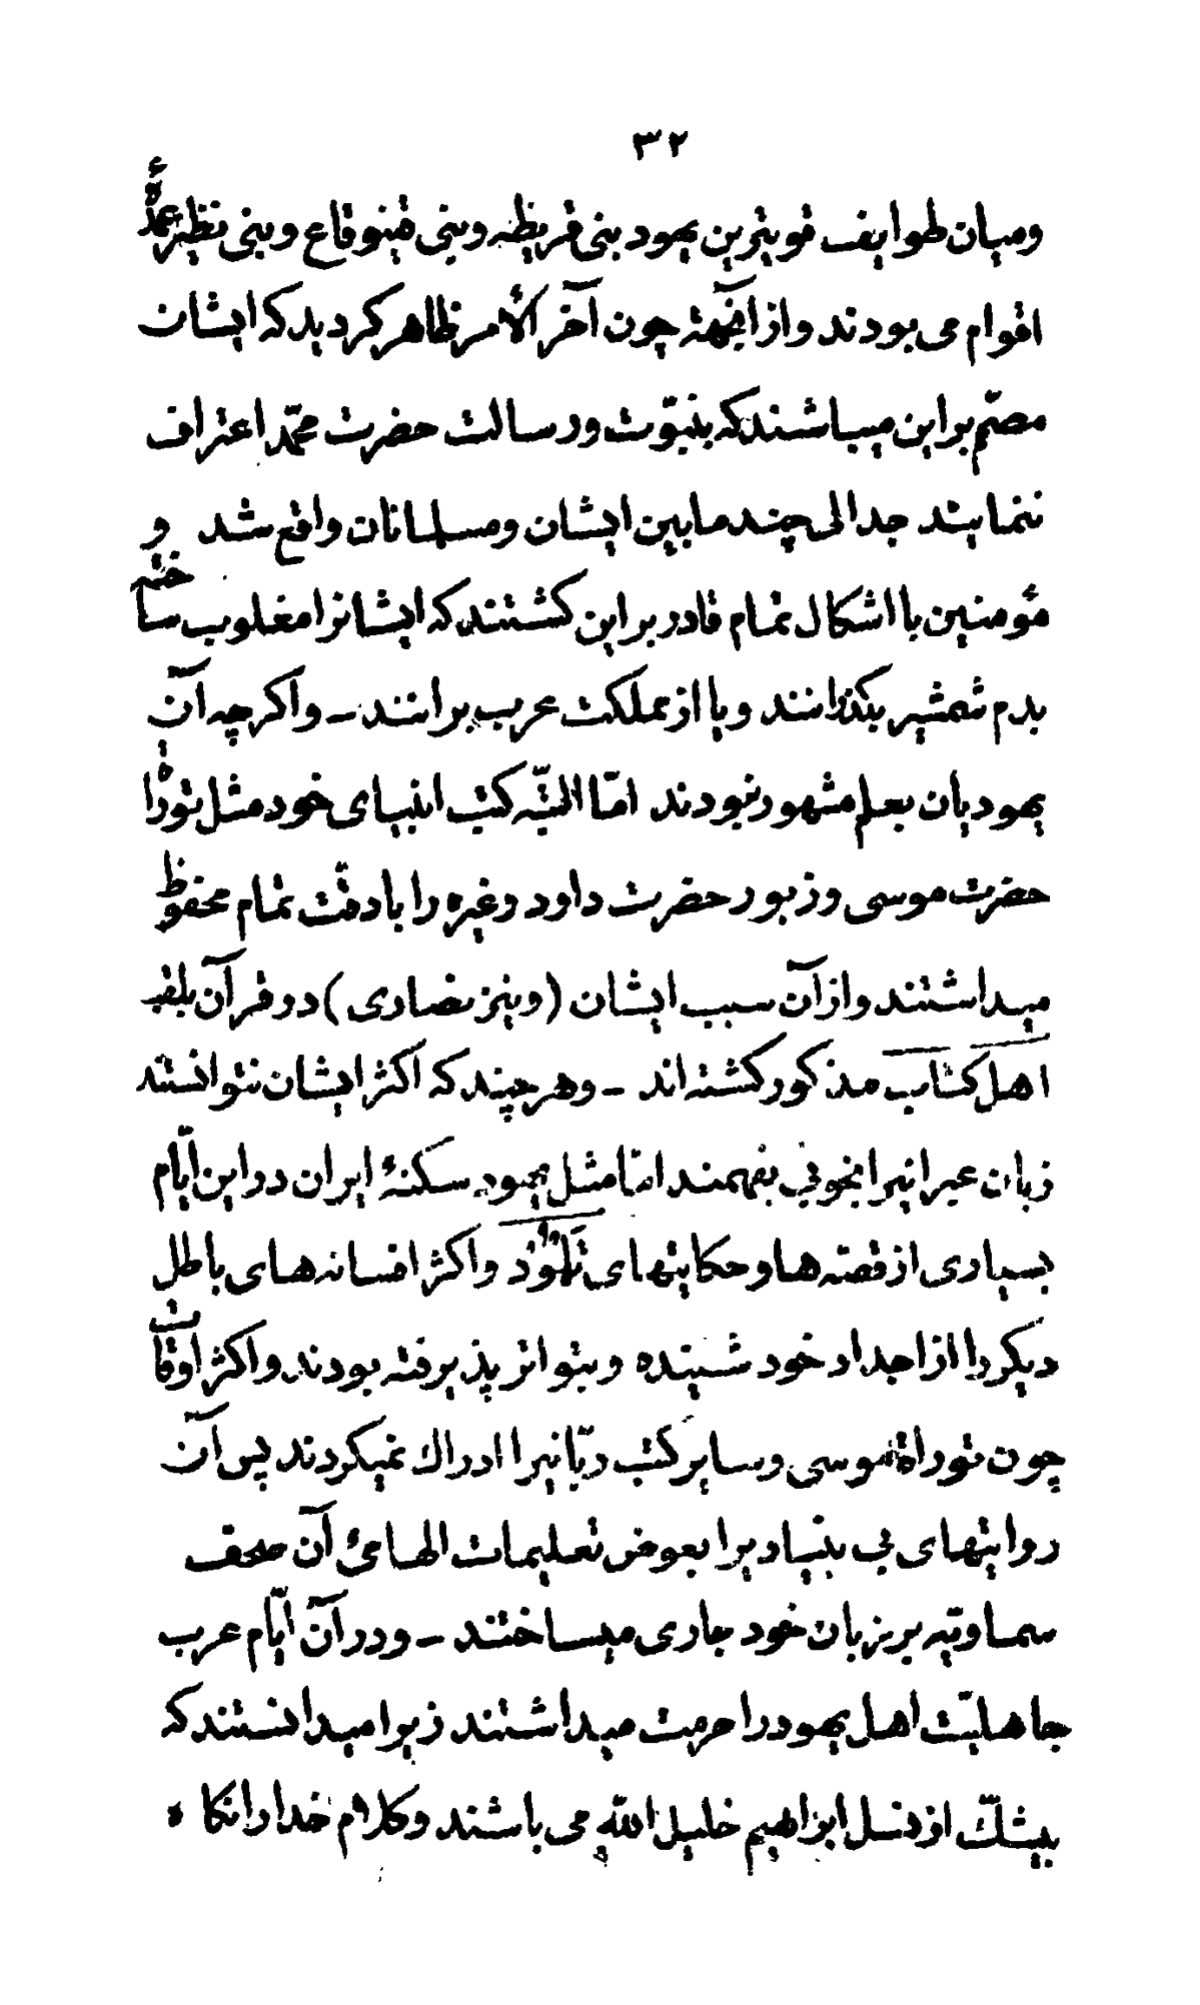 ۳۲
ومیان طوایف قویترین یهود بنی قریظه وبنی قینوقاع وبنی نظیر عمدهٔ
اقوام می بودند واز اینجهة چون آخر الأمر ظاهر کردید که ایشان
مصمّم بر این میباشند که بنبوّت ورسالت حضرت محمّد اعتراف
ننمایند جدالی چند مابین ایشان ومسلمانان واقع شد و
مؤمنین با اشکال تمام قادر بر این کشتند که ایشانرا مغلوب ساخته
بدم شمشیر بکذرانند ویا از مملکت عرب برانند ــ واکرچه آن
یهودیان بعلم مشهور نبودند امّا البتّه کتب انبیای خود مثل توراة
حضرت موسی وزبور حضرت داود وغیره را با دقّت تمام محفوظ
میداشتند واز آن سبب ایشان (ونیز نصاری) در قرآن بلقب
اهل کتاب مذکور کشته‌اند ــ وهرچند که اکثر ایشان نتوانستند
زبان عبرانیرا بخوبی بفهمند امّا مثل یهود سکنهٔ ایران در این ایّام
بسیاری از قصّه‌ها وحکایتهای تَلْمُود واکثر افسانه‌های باطل
دیکر را از اجداد خود شنیده وبتواتر پذیرفته بودند واکثر اوقات
چون توراة موسی وسایر کتب ربّانیرا ادراك نمیکردند پس آن
روایتهای بی بنیادیرا بعوض تعلیمات الهامئ آن صحف
سماویّه بر زبان خود جاری میساختند ــ ودر آن ایّام عرب
جاهلیّت اهل یهود را حرمت میداشتند زیرا میدانستند که
بیشكّ از نسل ابراهیم خلیل الله می باشند وکلام خدا را نکاه